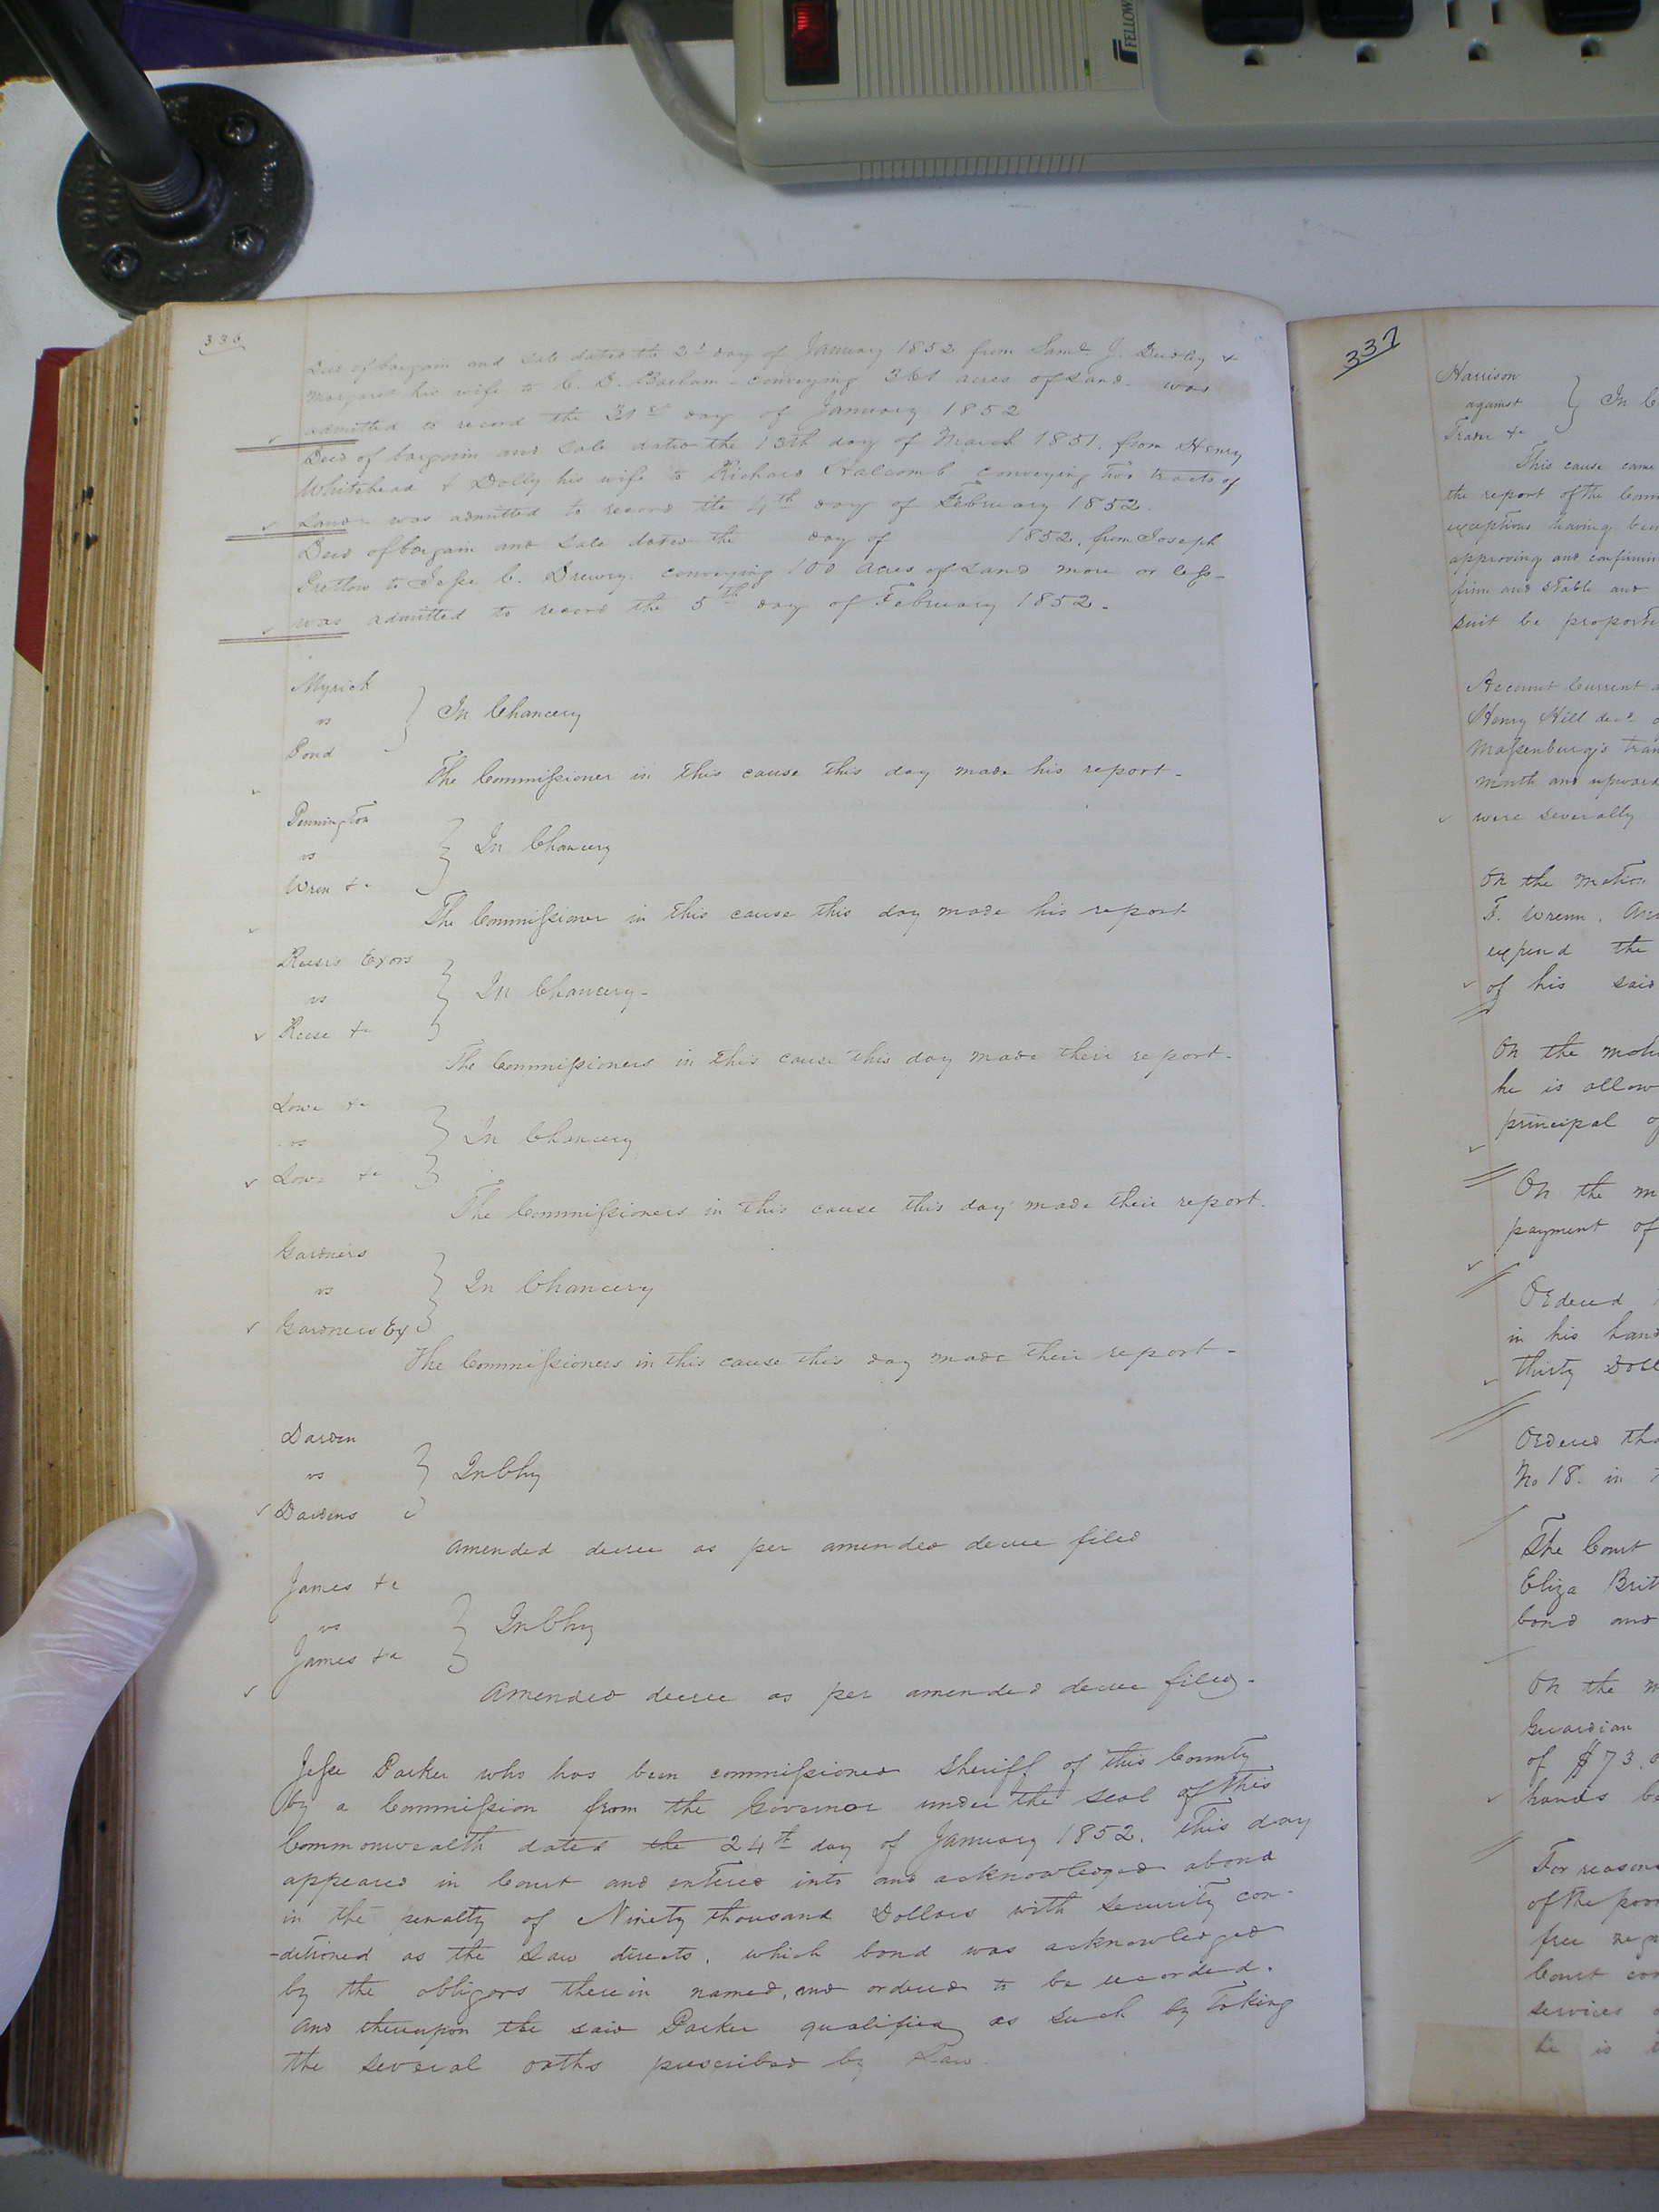 FELLOW
336
Deed of bargain and sale dated the 2d day of January 1852 from Saml. J. Dudley &
Margaret his wife to C. D. Barham - conveying 361 acres of Land. was
admitted to record the 31st day of January 1852
Deed of bargain and sale dated the 13th day of March 1851. from Henry
Whitehead & Dolly his wife to Richard Halcomb conveying two tracts of
Land was admitted to record the 4th day of February 1852.
Deed of bargain and sale dated the day of 1852. from Joseph
Pretlow to Jesse C. Drewry. conveying 100 acres of Land more or less-
was admitted to record the 5th day of February 1852.
Myrick
vs } In Chancery
Bond
The Commissioner in this cause this day made his report-
Pennington
vs } In Chancery
Wren &c
The Commissioner in this cause this day made his report
Reese's Exors
vs } In Chancery-
Reese &c
The Commissioners in this cause this day made their report-
Lowe &c
vs } In Chancery
Lowe &c
The Commissioners in this cause this day made their report.
Gardners
vs } In Chancery
Gardners Ex
The Commissioners in this cause this day made their report-
Darden
vs } In Chy
Dardens
Amended decree as per amended decree filed
James &c
vs } In Chy
James &c
Amended decree as per amended decree filed.
Jesse Parker who has been commissioned Sheriff of this County
by a Commission from the Governor under the seal of this
Commonwealth dated the 24th day of January 1852. this day
appeared in Court and entered into and acknowledged a bond
in the penalty of Ninety thousand Dollars with security con-
-ditioned as the Law directs, which bond was acknowledged
by the obligors therein named, and ordered to be recorded.
And thereupon the said Parker qualified as such by taking
the several oaths prescribed by Law.
337
Harrison
against } In C
Trader &c
This cause came
the report of the Com
exceptions having been
approving and confirmin
firm and stable and
suit be proporti
Account Current a
Henry Hill decd.
Massenburg's tran
month and upward
were severally
On the motion
F. Wrenn.
expend the
of his said
On the moti
he is allow
principal of
On the m
payment of
Ordered
in his hand
thirty Doll
Ordered tha
No 18. in
The Court
Eliza Brit
bond and
On the m
Guardian
of $73.
hands be
For reasons
of the poor
free neg
Court con
services
he is